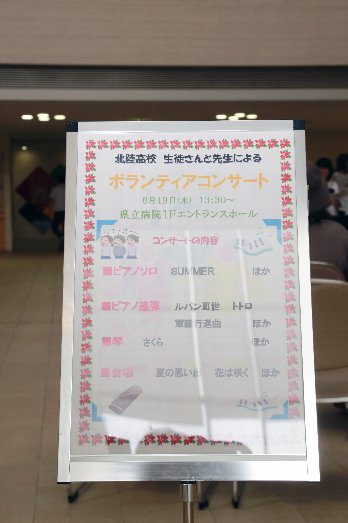 北陸高校 生徒さんと先生による
ボランティアコンサート
8月19日(水) 13:30~
県立病院1Fエントランスホール
コンサートの内容
■ピアノソロ SUMMER ほか
■ピアノ連弾 ルパン三世 トトロ
軍隊行進曲 ほか
■琴 さくら ほか
■合唱 夏の思い出 花は咲く ほか